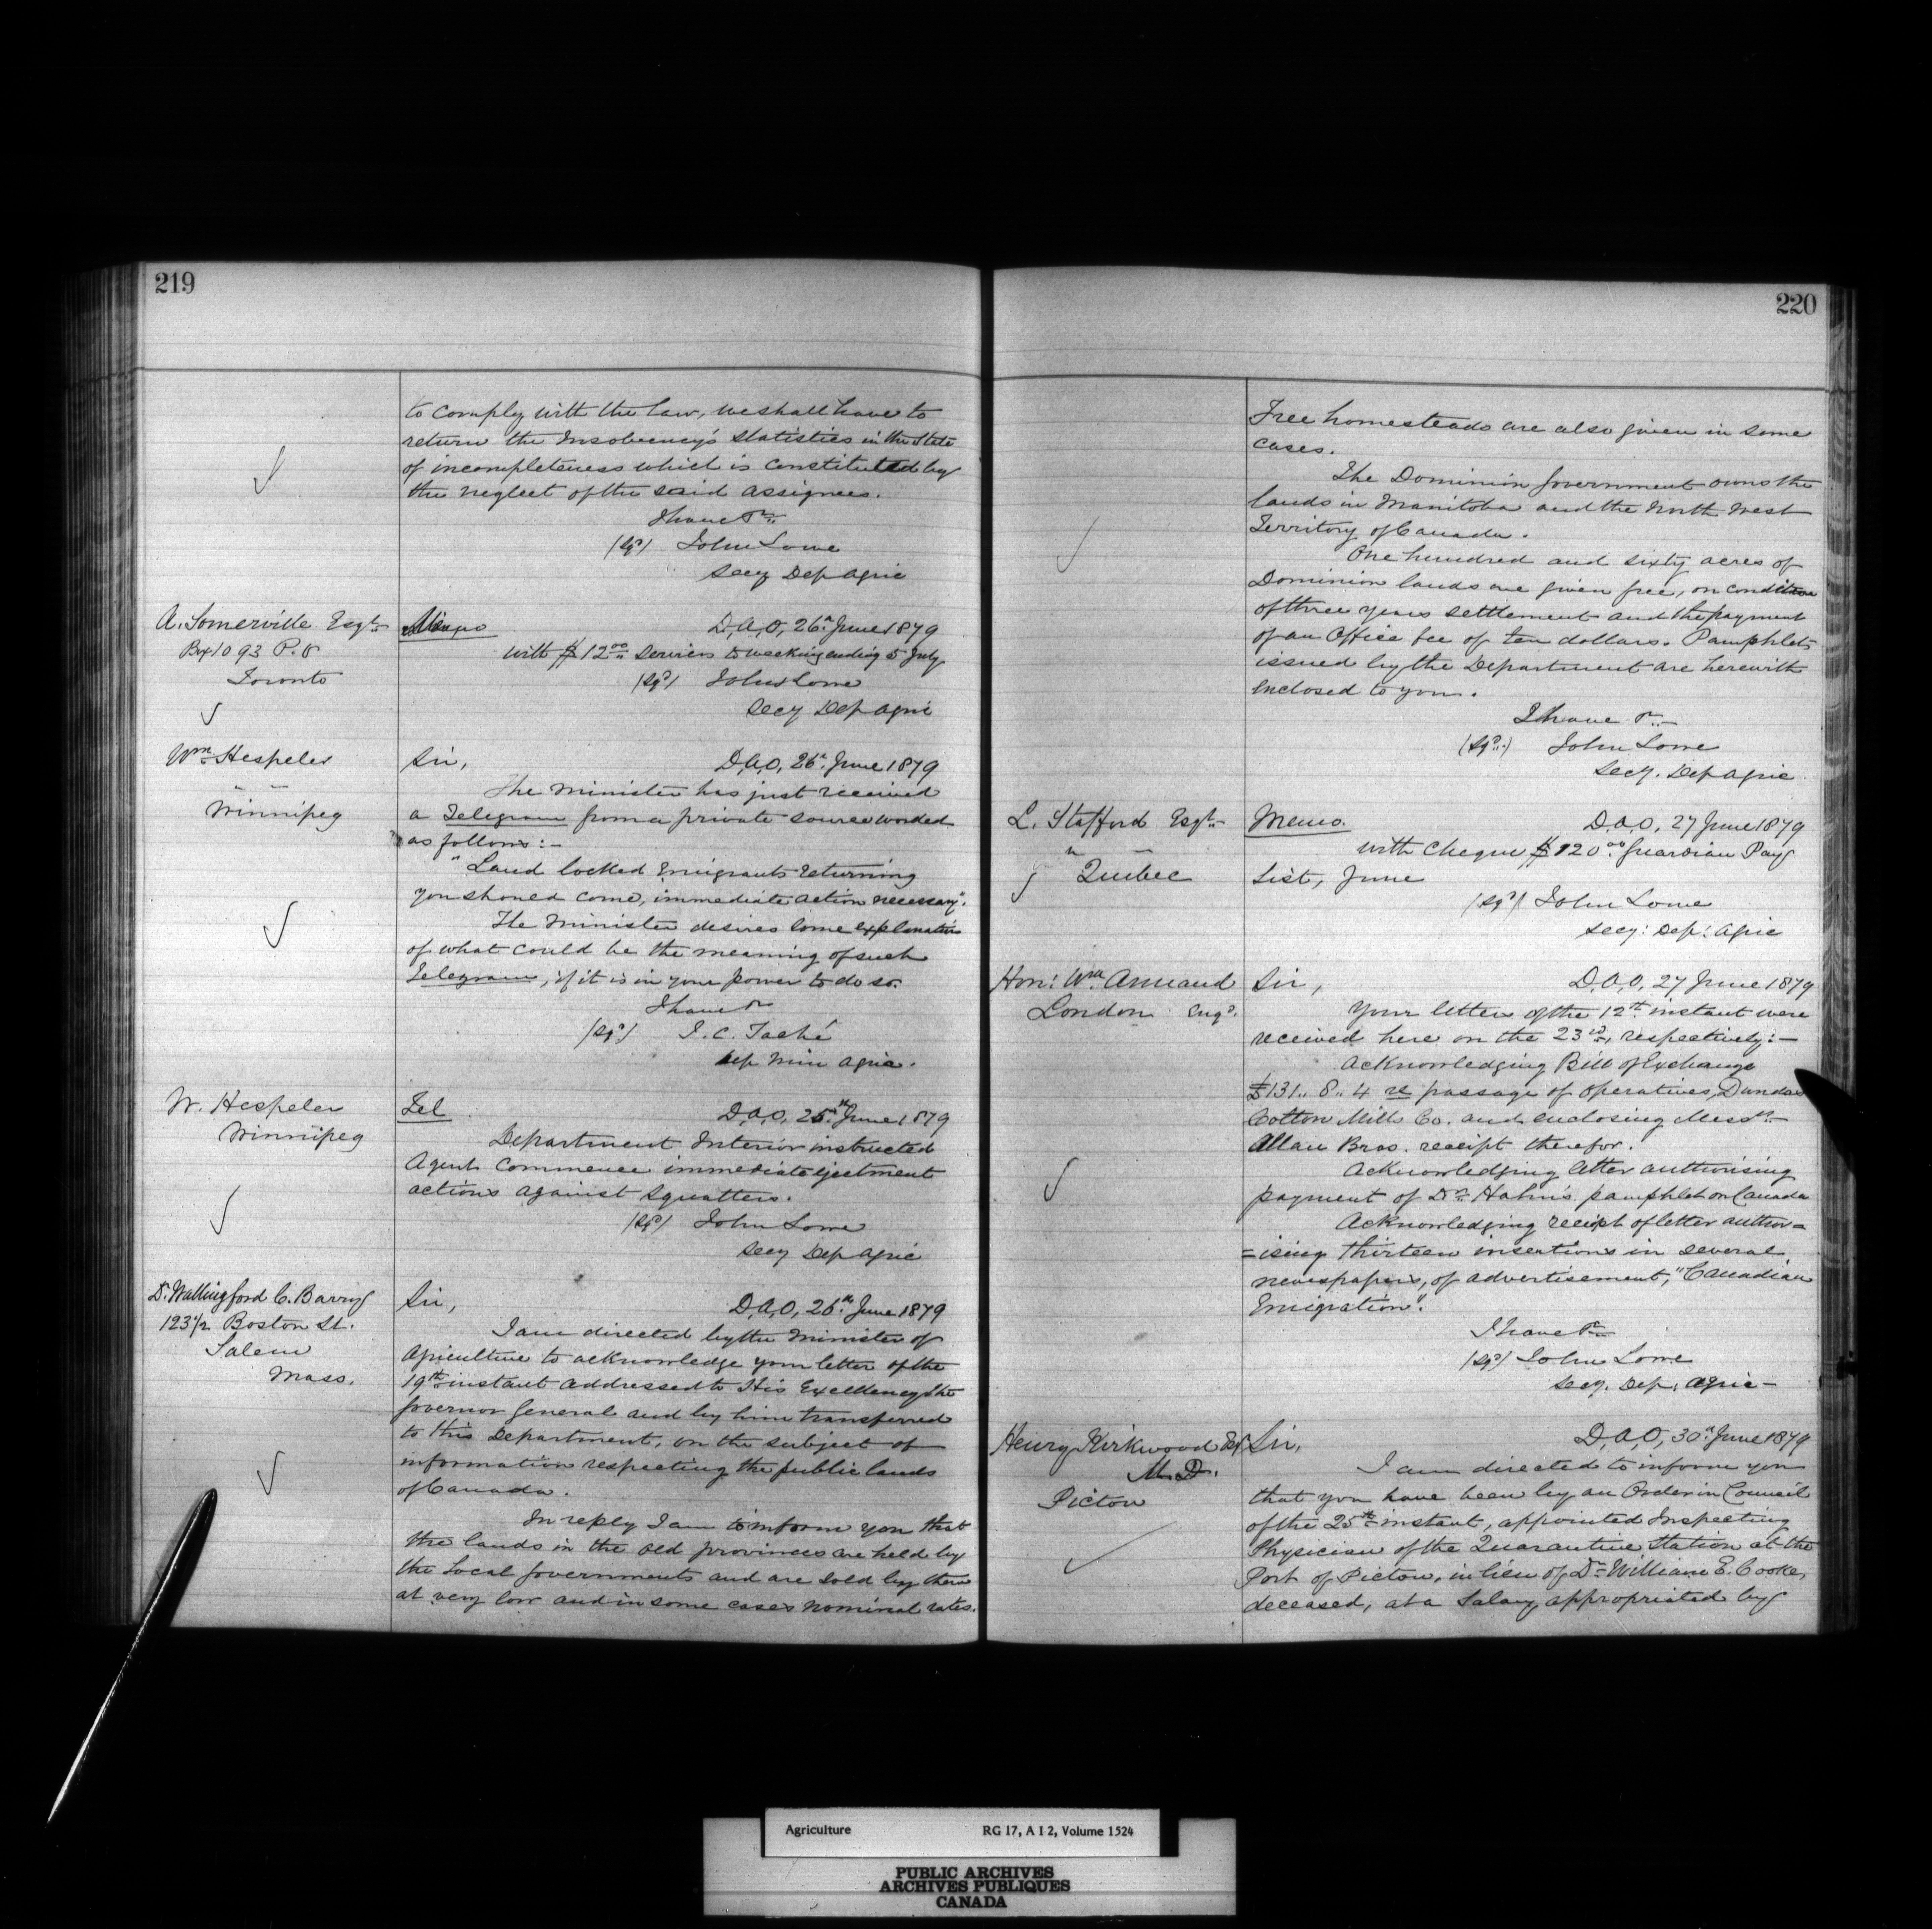 219
to comply with the law, we shall have to
return the Insolvency's statistics in the state
of incompleteness which is constituted by
the neglect of the said assignees.
I have &c
(sgd) John Lowe
Secy Dep Agric
A. Somerville Esqre
Box 1093 P.O
Toronto
Memo
D,A,O, 26th June 1879
with $12.00 services to week ending 5 July
(sgd) John Lowe
Secy Dep Agric
Wm. Hespeler
Winnipeg
Sir,
D,A,O, 26th June 1879
The Minister has just received
a Telegram from a private source worded
as follows:-
"Land locked Emigrants returning
you should come, immediate action necessary".
The Minister desires some explanation
of what could be the meaning of such
Telegram, if it is in your power to do so.
I have &c
(sgd) J. C. Taché
Dep Min Agric.
W. Hespeler
Winnipeg
Tel
D,A,O, 25th June 1879
Department Interior instructed
Agent commence immediate ejectment
actions against squatters.
(sgd) John Lowe
Secy Dep Agric
Dr. Wallingford C. Barry
123½ Boston St.
Salem
Mass.
Sir,
D,A,O, 26th June 1879
I am directed by the Minister of
Agriculture to acknowledge your letter of the
19th instant addressed to His Excellency the
Governor General and by him transferred
to this Department, on the subject of
information respecting the public lands
of Canada.
In reply I am to inform you that
the lands in the old provinces are held by
the Local Governments and are sold by them
at very low and in some cases nominal rates.
220
Free homesteads are also given in some
cases.
The Dominion Government owns the
lands in Manitoba and the North West
Territory of Canada.
One hundred and sixty acres of
Dominion lands are given free, on condition
of three years settlement and the payment
of an Office fee of ten dollars. Pamphlets
issued by the Department are herewith
enclosed to you.
I have &c
(sgd.) John Lowe
Secy. Dep Agric
L. Stafford Esqre
Quebec
Memo.
D.A,O, 27 June 1879
with cheque $120.00 Guardian Pay
List, June
(sgd) John Lowe
Secy: Dep: Agric
Hon: Wm. Annand
London Engd.
Sir,
D,A,O, 27 June 1879
Your letters of the 12th instant were
received here on the 23rd, respectively:-
Acknowledging Bill of Exchange
£131.. 8.. 4 re passage of operatives, Dundas
Cotton Mills Co. and enclosing Messrs
Allan Bros. receipt therefor.
Acknowledging letter authorising
payment of Dr. Hahn's pamphlet on Canada
Acknowledging receipt of letter author=
=ising thirteen insertions in several
newspapers, of advertisement, "Canadian
Emigration".
I have &c
(sgd) John Lowe
Secy. Dep: Agric-
Henry Kirkwood Esq
M.D.
Picton
Sir,
D,A,O, 30th June 1879
I am directed to inform you
that you have been by an Order in Council
of the 25th instant, appointed Inspecting
Physician of the Quarantine Station at the
Port of Pictou, in lieu of Dr William E. Cooke,
deceased, at a Salary, appropriated by
Agriculture RG 17, A I 2, Volume 1524
PUBLIC ARCHIVES
ARCHIVES PUBLIQUES
CANADA